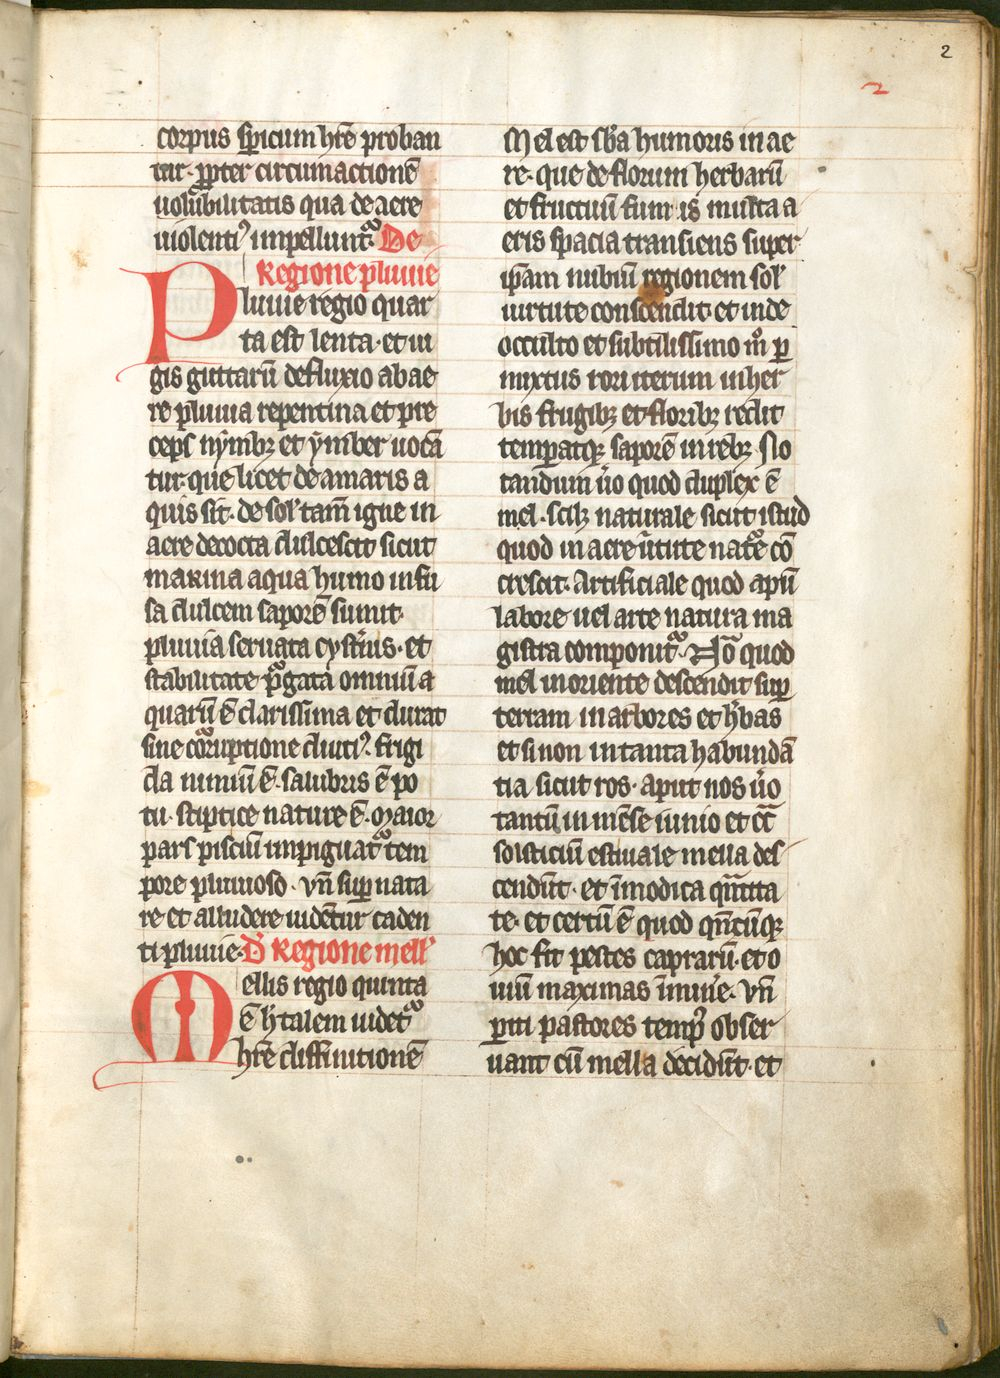 2
2
corpus spericum hr̄e proban
tur· ꝓpter circumactionē
uolubilitatis qua de aere
uiolenti᷒ impellunt᷑ De
Regione pluuie
Pluuie regio quar
ta est lenta· et iu
gis guttarū defluxio ab ae
re pluuia repentina et pre
ceps nȳmbꝫ et ȳmber uocā
tur· que licet de amaris a
quis sit· de sol᷒ tam̄ igne in
aere decocta dulcescit sicut
marina aqua humo infu
sa dulcem saporē sumit·
pluuia seruata cyst̄nis· et
stabilitate ꝑgata omniū a
quarū ē clarissima et durat
sine corruptione diuti᷒· frigi
da nimiū ē· salubris ē po
tu· stiptice nature ē· Maior
pars pisciū inpiguat᷑ tem
pore pluuioso· vn̄ supernata
re et alludere uidēntur caden
ti pluuie· D̄ Regione mell᷒
Mellis regio quinta
ē h᷒ talem uidet᷑
hr̄e diffinitionē
Mel est sb̄a humoris in ae
re· que de florum herbarū
et fructuū fumis multa a
eris spacia transiens super
ip̄am nubiū regionem sol᷒
uirtute conscendit· et inde
occulto et subtilissimo m̊ ꝑ
mixtus rori iterum in her
bis frugibꝫ et floribꝫ redit
temperatqꝫ saporē in rebꝫ No
tandum ūo quod duplex ē
mel· scilꝫ naturale sicut istud
quod in aere ūtute nat᷑e cō
crescit· Artificiale quod apū
labore uel arte natura ma
gistra componit᷑· Nō quod
mel in oriente descendit sup̄
terram in arbores et h̄bas
et si non in tanta habundā
tia sicut ros· aput nos ūo
tantū in mēse iunio et ct̄
solsticiū estiuale mella des
cendūt· et īmodica qn̄tita
te· et certū ē quod qn̄cūqꝫ
hoc fit pestes caprarū· et o
uiū maximas īmin̄e· vn̄
ꝑiti pastores temp᷒ obser
uant cū mella decidūt· et